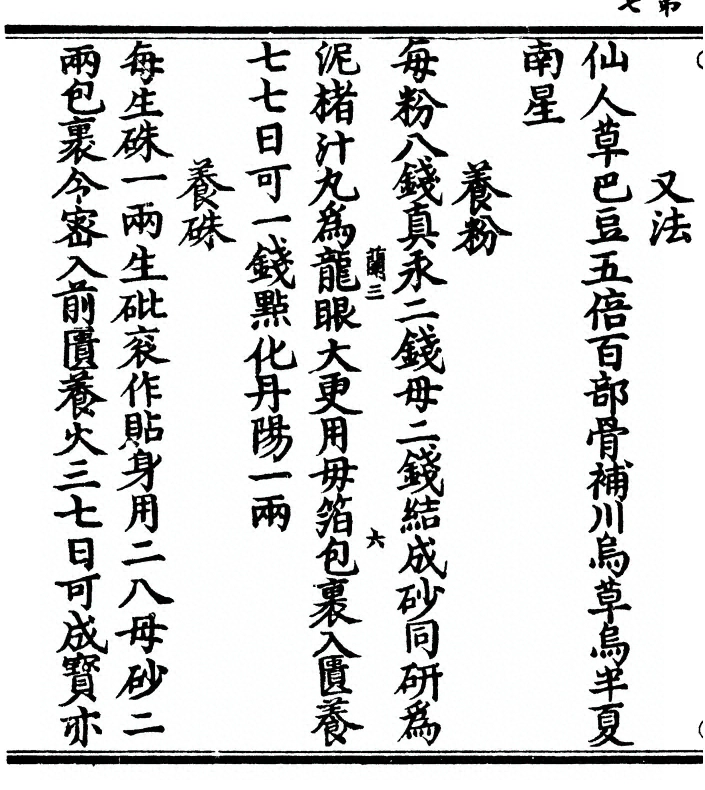 又法
仙人草巴豆五倍百部骨補川烏草烏半夏
南星
養粉
每粉八錢真汞二錢母二錢結成砂同研為
蘭三
六
泥楮汁丸為龍眼大更用母箔包裹入匱養
七七日可一錢點化丹陽一兩
養硃
每生硃一兩生砒衮作貼身用二八母砂二
兩包裹令密入前匱養火三七日可成寳亦